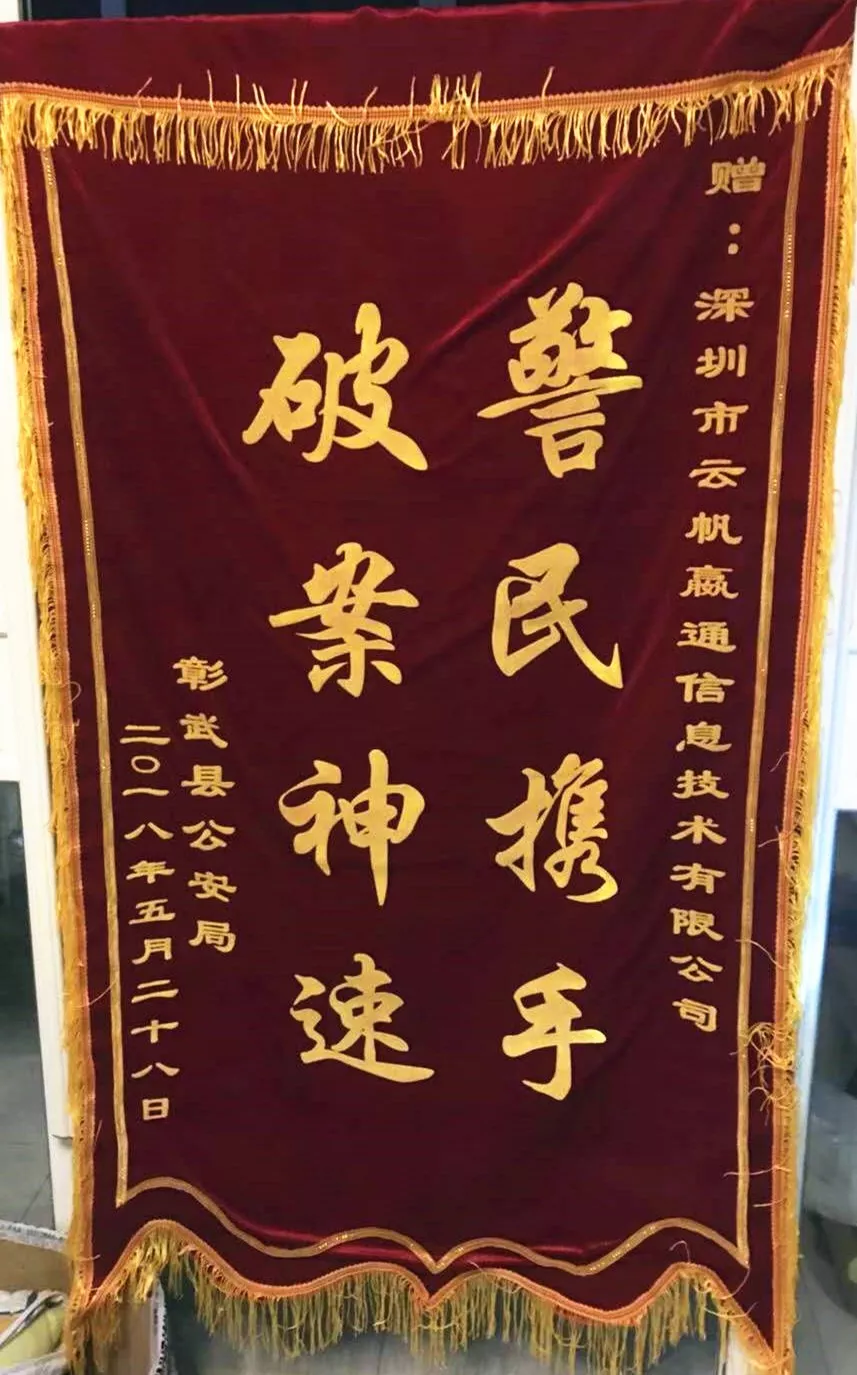 赠：深圳市云帆赢通信息技术有限公司
警民携手
破案神速
彰武县公安局
二〇一八年五月二十八日